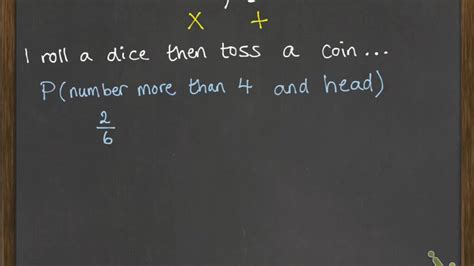 x +
I roll a dice then toss a coin...
P(number more than 4 and head)
2
6